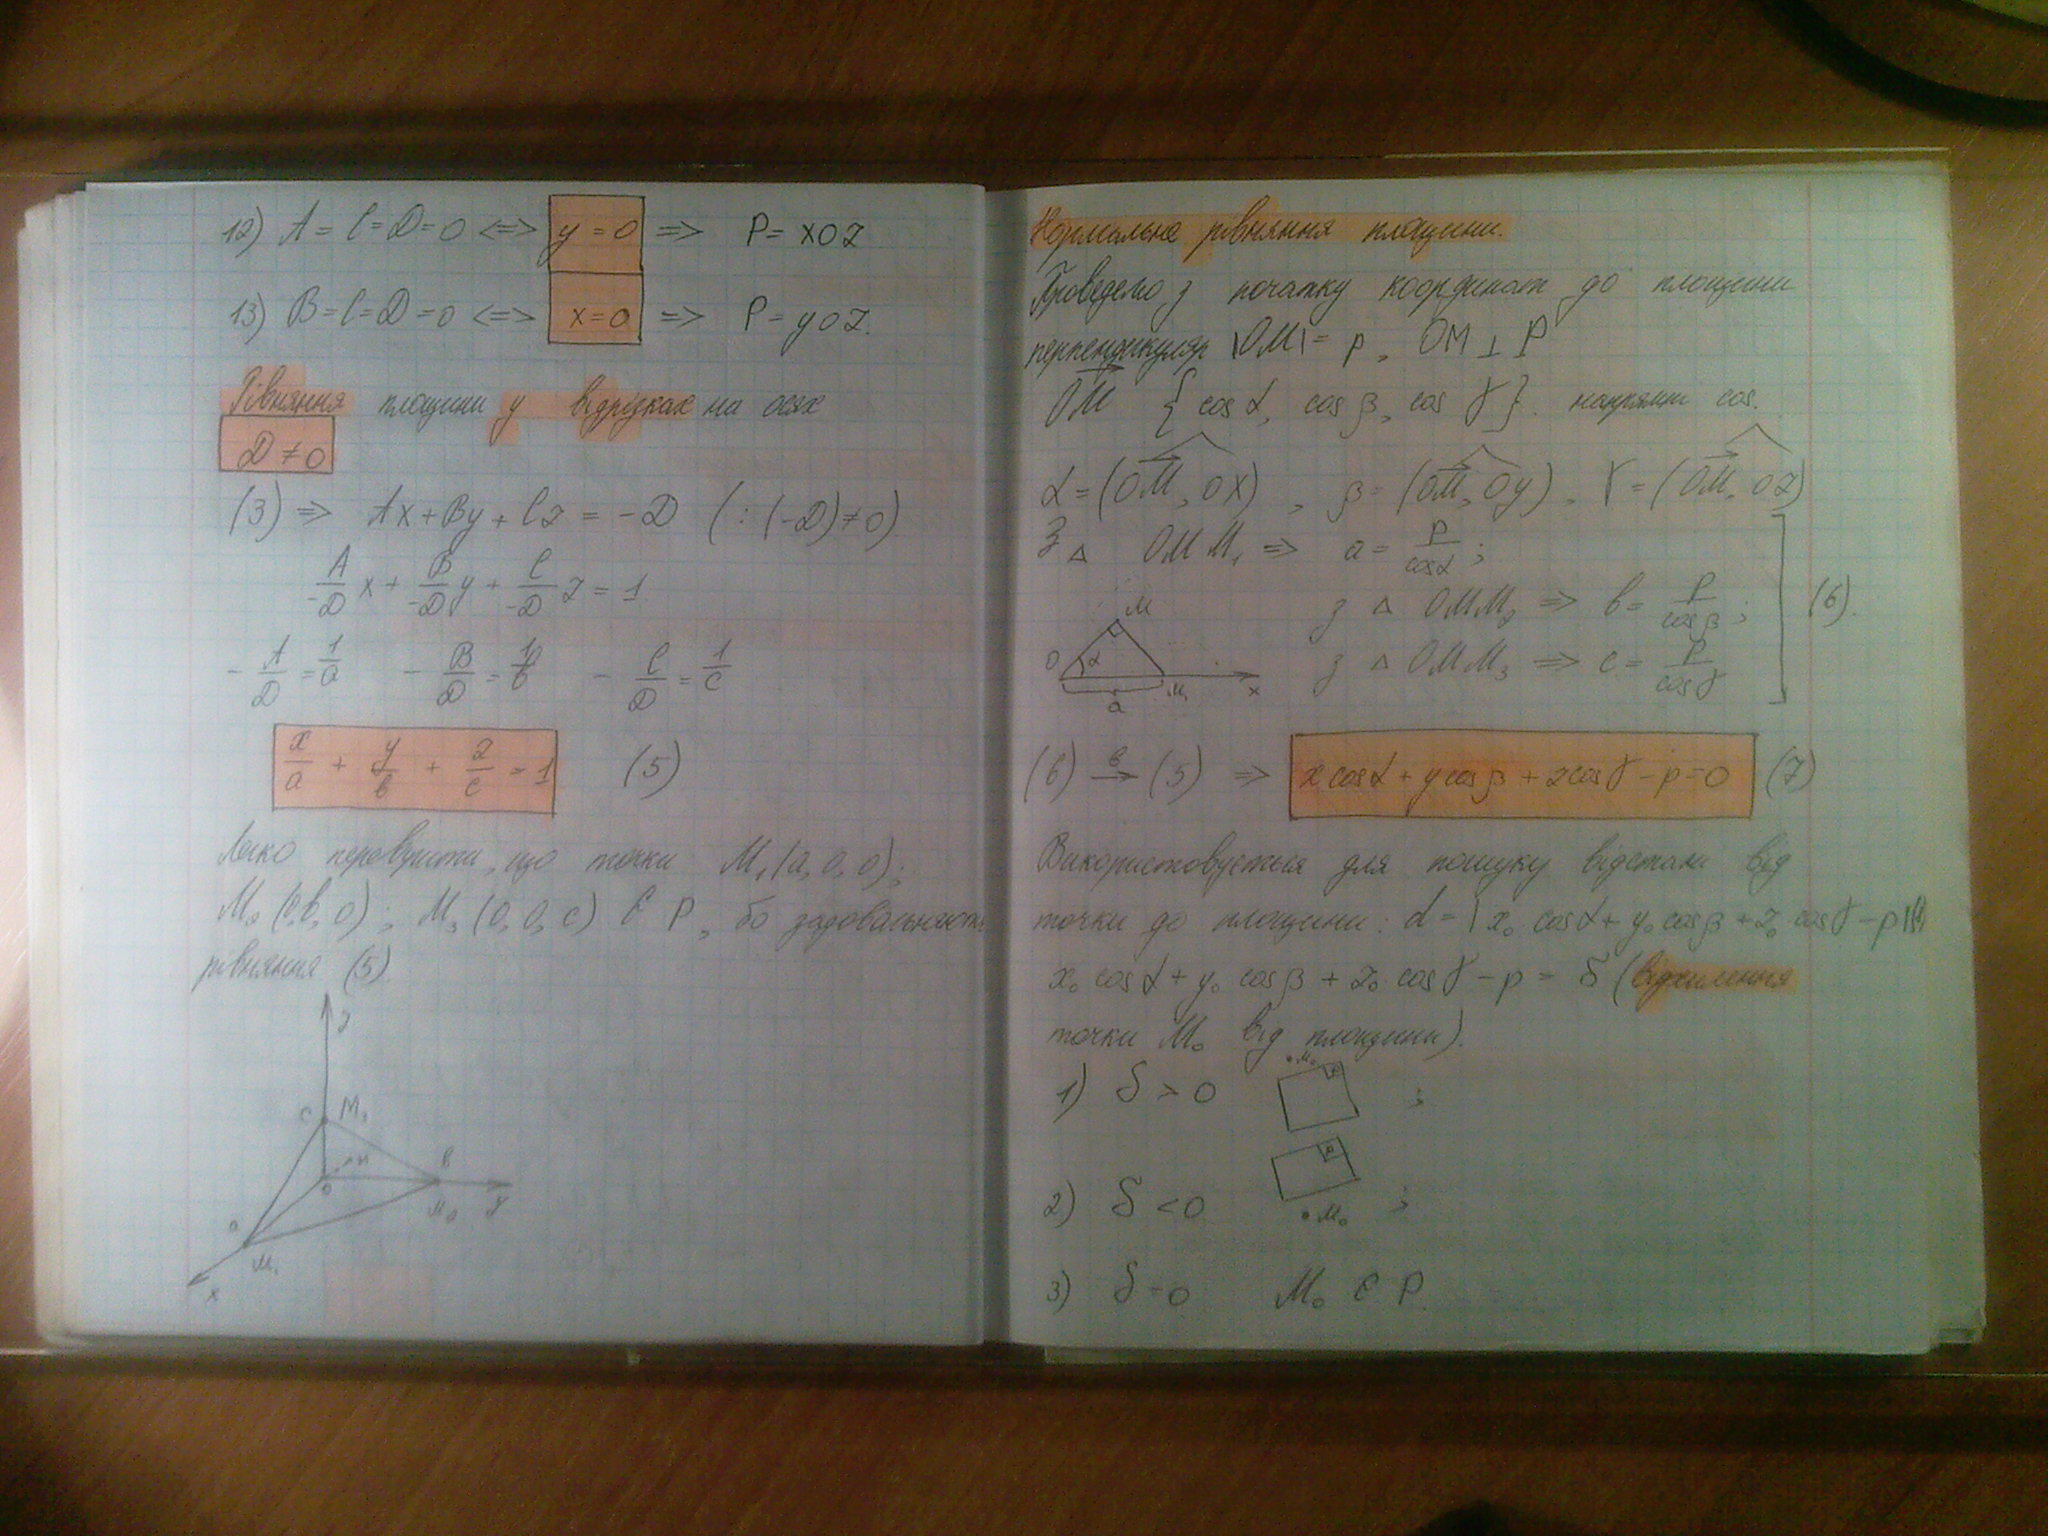 12) A = C = D = 0 <=> y = 0 => P = xOz
13) B = C = D = 0 <=> x = 0 => P = yOz.
Рівняння площини у відрізках на осях
D ≠ 0
(3) => Ax + By + Cz = -D (: (-D) ≠ 0)
A/-D x + B/-D y + C/-D z = 1
- A/D = 1/a - B/D = 1/в - C/D = 1/c
x/a + y/в + z/c = 1 (5)
Легко перевірити, що точки M₁(a, 0, 0);
M₂(0, в, 0); M₃(0, 0, c) ∈ P, бо задовольняють
рівняння (5).
z
c M₃
M в
0 M₂ y
a
M₁
x
Нормальне рівняння площини.
Проведемо з початку координат до площини
перпендикуляр |OM| = p, OM ⊥ P
OM { cos α, cos β, cos γ }. напрямні cos.
α = (OM, OX), β = (OM, Oy), γ = (OM, OZ)
З △ OMM₁ => a = p/cosα ;
з △ OMM₂ => в = p/cosβ ; (6).
з △ OMM₃ => c = p/cosγ
M
O α M₁ x
a
(6) в→ (5) => x cosα + y cosβ + z cosγ - p = 0 (7)
Використовується для пошуку відстані від
точки до площини: d = | x₀ cosα + y₀ cosβ + z₀ cosγ - p |
x₀ cosα + y₀ cosβ + z₀ cosγ - p = δ (відхилення
точки M₀ від площини).
1) δ > 0 M₀ P ;
2) δ < 0 P M₀ ;
3) δ = 0 M₀ ∈ P